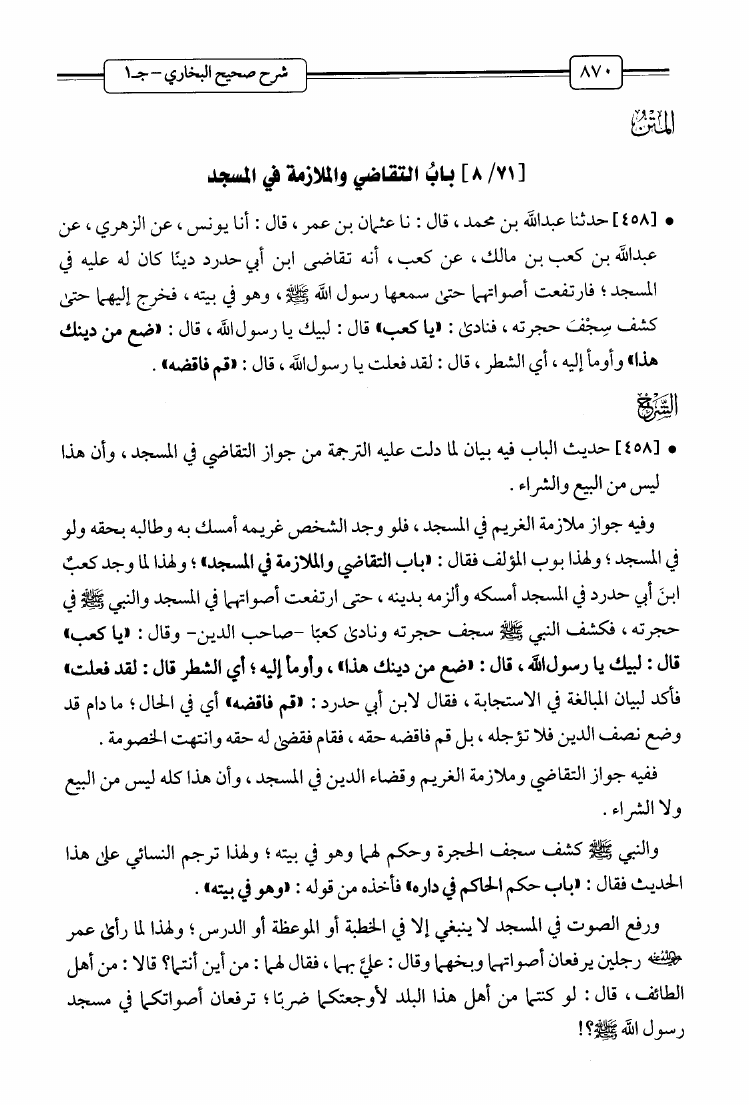 ٨٧٠
شرح صحيح البخاري - جـ١
المتن
[٨/٧١] بابُ التقاضي والملازمة في المسجد
• [٤٥٨] حدثنا عبدالله بن محمد ، قال : نا عثمان بن عمر ، قال : أنا يونس ، عن الزهري ، عن
عبدالله بن كعب بن مالك ، عن كعب ، أنه تقاضى ابن أبي حدرد دينًا كان له عليه في
المسجد ؛ فارتفعت أصواتهما حتى سمعها رسول الله ﷺ ، وهو في بيته ، فخرج إليهما حتى
كشف سِجْفَ حجرته ، فنادى : «يا كعب» قال : لبيك يا رسول الله ، قال : «ضع من دينك
هذا» وأومأ إليه ، أي الشطر ، قال : لقد فعلت يا رسول الله ، قال : «قم فاقضه» .
الشرح
• [٤٥٨] حديث الباب فيه بيان لما دلت عليه الترجمة من جواز التقاضي في المسجد ، وأن هذا
ليس من البيع والشراء .
وفيه جواز ملازمة الغريم في المسجد ، فلو وجد الشخص غريمه أمسك به وطالبه بحقه ولو
في المسجد ؛ ولهذا بوب المؤلف فقال : «باب التقاضي والملازمة في المسجد» ؛ ولهذا لما وجد كعبٌ
ابنَ أبي حدرد في المسجد أمسكه وألزمه بدينه ، حتى ارتفعت أصواتهما في المسجد والنبي ﷺ في
حجرته ، فكشف النبي ﷺ سجف حجرته ونادى كعبًا -صاحب الدين- وقال : «يا كعب»
قال : لبيك يا رسول الله ، قال : «ضع من دينك هذا» ، وأومأ إليه ؛ أي الشطر قال : لقد فعلت»
فأكد لبيان المبالغة في الاستجابة ، فقال لابن أبي حدرد : «قم فاقضه» أي في الحال ؛ ما دام قد
وضع نصف الدين فلا تؤجله ، بل قم فاقضه حقه ، فقام فقضى له حقه وانتهت الخصومة .
ففيه جواز التقاضي وملازمة الغريم وقضاء الدين في المسجد ، وأن هذا كله ليس من البيع
ولا الشراء .
والنبي ﷺ كشف سجف الحجرة وحكم لهما وهو في بيته ؛ ولهذا ترجم النسائي على هذا
الحديث فقال : «باب حكم الحاكم في داره» فأخذه من قوله : «وهو في بيته» .
ورفع الصوت في المسجد لا ينبغي إلا في الخطبة أو الموعظة أو الدرس ؛ ولهذا لما رأى عمر
رضي الله عنه رجلين يرفعان أصواتهما وبخهما وقال : عليَّ بهما ، فقال لهما : من أين أنتما؟ قالا : من أهل
الطائف ، قال : لو كنتما من أهل هذا البلد لأوجعتكما ضربًا ؛ ترفعان أصواتكما في مسجد
رسول الله ﷺ؟!